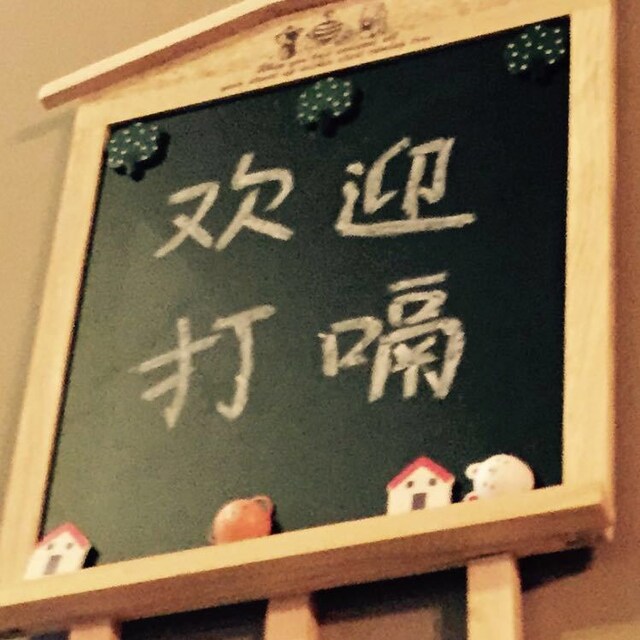 欢迎
打嗝